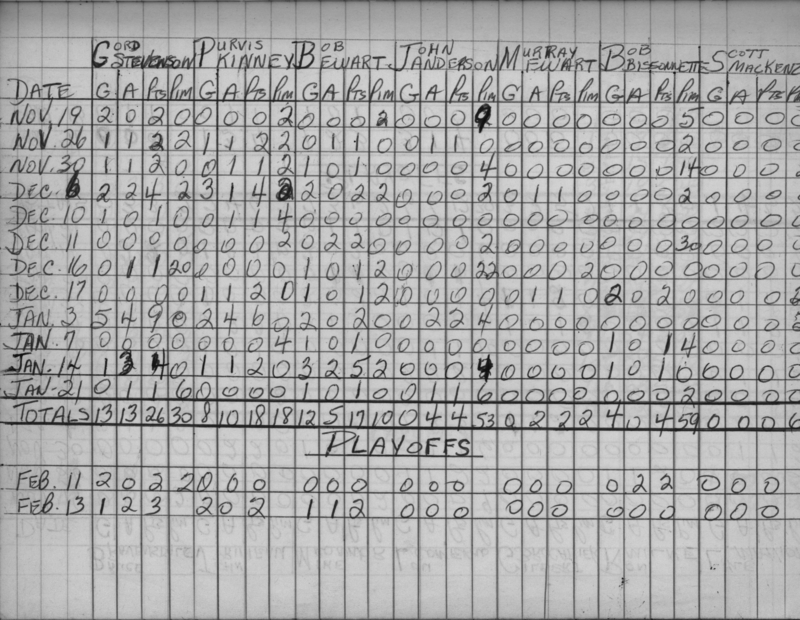 GORD STEVENSON PURVIS KINNEY BOB EWART JOHN ANDERSON MURRAY EWART BOB BISSONNETTE SCOTT MACKENZ
DATE G A PTS PIM G A PTS PIM G A PTS PIM G A PTS PIM G A PTS PIM G A PTS PIM G A PTS P
NOV. 19 2 0 2 0 0 0 0 2 0 0 0 2 0 0 0 9 0 0 0 0 0 0 0 5 0 0 0 0
NOV. 26 1 1 2 2 1 1 2 2 0 1 1 0 0 1 1 0 0 0 0 0 0 0 0 2 0 0 0 0
NOV. 30 1 1 2 0 0 1 1 2 1 0 1 0 0 0 0 4 0 0 0 0 0 0 0 14 0 0 0 0
DEC. 6 2 2 4 2 3 1 4 2 2 0 2 2 0 0 0 2 0 1 1 0 0 0 0 2 0 0 0 0
DEC. 10 1 0 1 0 0 1 1 4 0 0 0 0 0 0 0 0 0 0 0 0 0 0 0 0 0 0 0 0
DEC. 11 0 0 0 0 0 0 0 2 0 2 2 0 0 0 0 2 0 0 0 0 0 0 0 30 0 0 0 0
DEC. 16 0 1 1 20 0 0 0 0 1 0 1 2 0 0 0 22 0 0 0 2 0 0 0 0 0 0 0 0
DEC. 17 0 0 0 0 1 1 2 0 1 0 1 2 0 0 0 0 0 1 1 0 2 0 2 0 0 0 0 2
JAN. 3 5 4 9 0 2 4 6 0 2 0 2 0 0 2 2 4 0 0 0 0 0 0 0 0 0 0 0 2
JAN. 7 0 0 0 0 0 0 0 4 1 0 1 0 0 0 0 0 0 0 0 0 1 0 1 4 0 0 0 0
JAN. 14 1 3 4 0 1 1 2 0 3 2 5 2 0 0 0 4 0 0 0 0 1 0 1 0 0 0 0 0
JAN. 21 0 1 1 6 0 0 0 0 1 0 1 0 0 1 1 6 0 0 0 0 0 0 0 2 0 0 0 2
TOTALS 13 13 26 30 8 10 18 18 12 5 17 10 0 4 4 53 0 2 2 2 4 0 4 59 0 0 0 6
PLAYOFFS
FEB. 11 2 0 2 2 0 0 0 0 0 0 0 0 0 0 0 0 0 2 2 0 0 0
FEB. 13 1 2 3 2 0 2 1 1 2 0 0 0 0 0 0 0 0 0 0 0 0